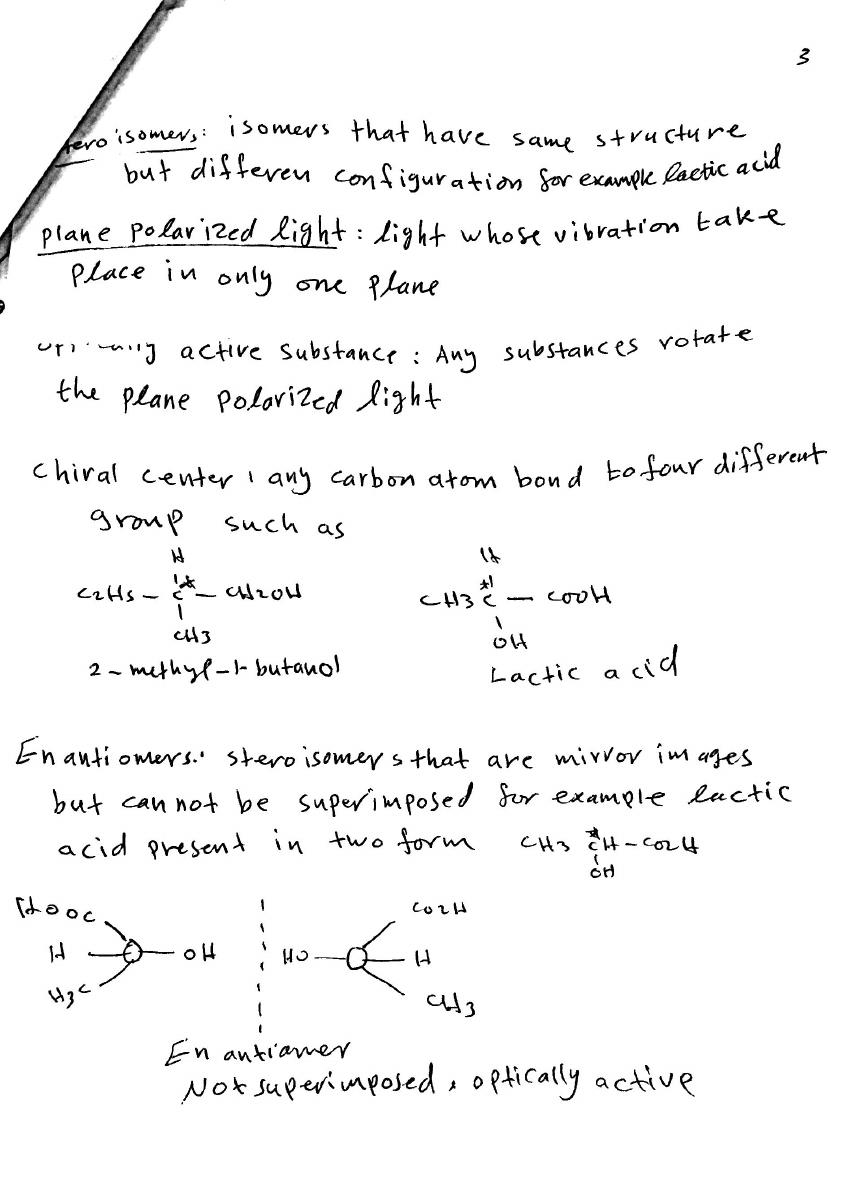 3
tero isomers: isomers that have same structure
but differen configuration for example lactic acid
plane polarized light: light whose vibration take
place in only one plane
active substance: Any substances rotate
the plane polarized light
Chiral center: any carbon atom bond to four different
group such as
H H
C2H5 - C* - CH2OH CH3 C* - COOH
CH3 OH
2-methyl-1-butanol Lactic acid
Enantiomers: steroisomers that are mirror images
but can not be superimposed for example lactic
acid present in two form CH3 C*H-CO2H
OH
HOOC CO2H
H OH HO H
H3C CH3
Enantiamer
Not superimposed, optically active